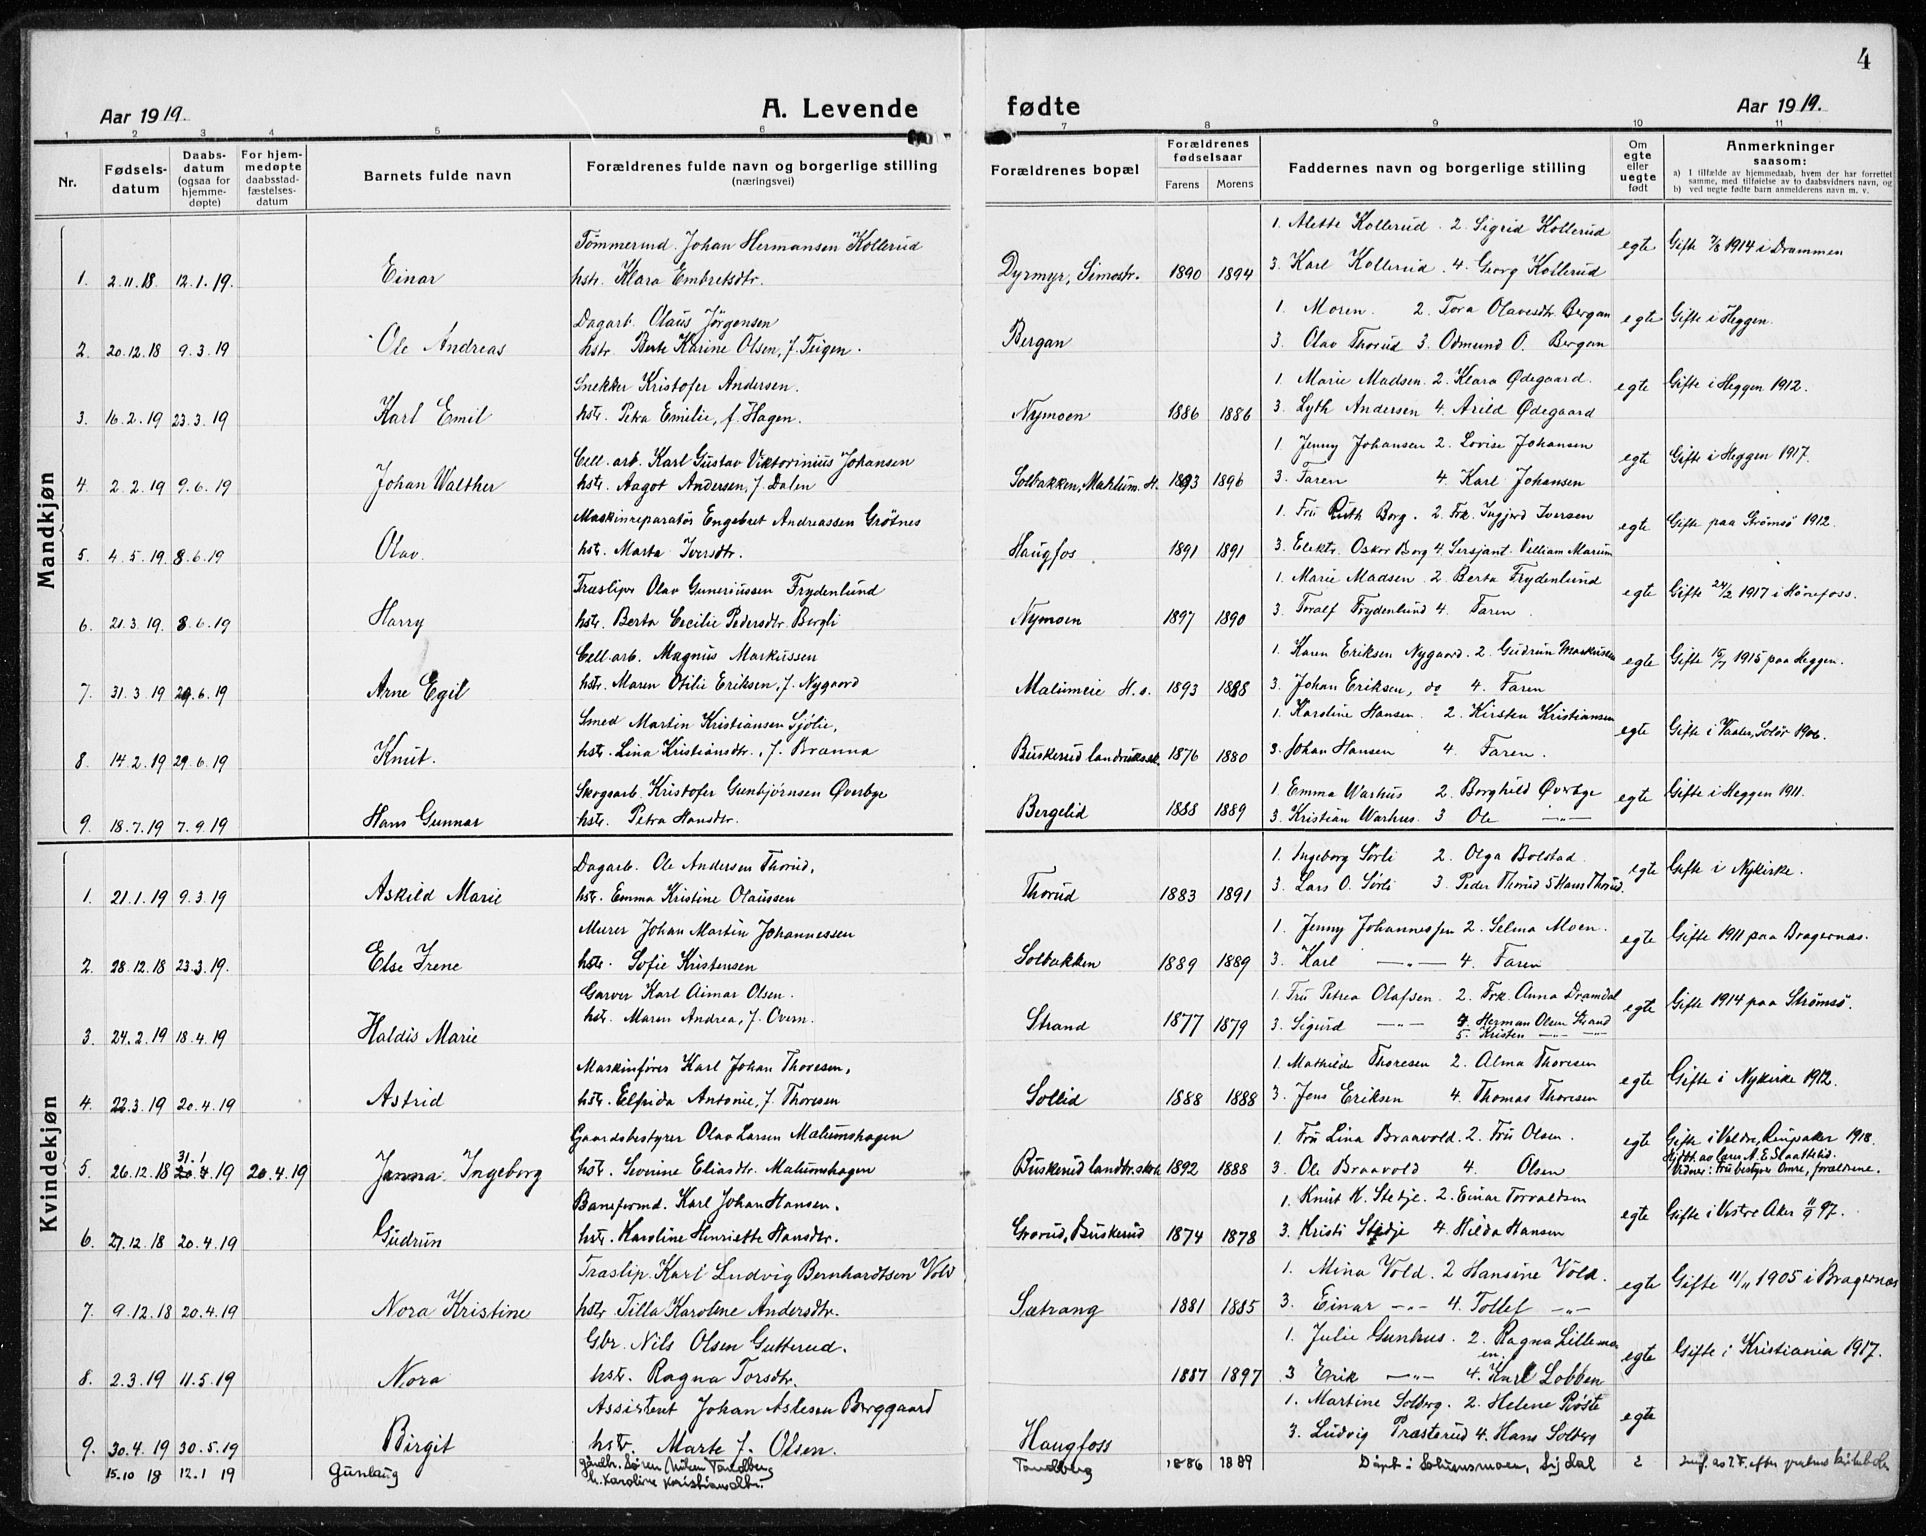 4
Aar 1919.
A. Levende
fødte
Aar 1919.
1 2 3 4 5 6 7 8 9 10 11
Nr.
Fødsels-
datum
Daabs-
datum
(ogsaa for
hjemme-
døpte)
For hjem-
medøpte
daabsstad-
fæstelses-
datum
Barnets fulde navn
Forældrenes fulde navn og borgerlige stilling
(næringsvei)
Forældrenes bopæl
Forældrenes
fødselsaar
Farens. Morens.
Faddernes navn og borgerlige stilling
Om
egte
eller
uegte
født
Anmerkninger
saasom:
a) I tilfælde av hjemmedaab, hvem der har forrettet
samme, med tilføielse av to daabsvidners navn, og
b) ved uegte fødte barn anmelderens navn m. v.
Mandkjøn
Tømmermd. Johan Hermansen Kollerud 1. Alette Kollerud. 2 Sigrid Kollerud
1. 2.11.18. 12.1.19. Einar hstr. Klara Embretsdtr. Dyrmyr, Simostr. 1890 1894 3. Karl Kollerud. 4. Georg Kollerud egte Gifte 7/8 1914 i Drammen
Dagarb. Olaus Jørgensen 1. Moren. 2. Tora Olavesdtr. Bergan
2. 20.12.18 9.3.19 Ole Andreas hstr. Berte Karine Olsen, f. Teigen. Bergan 3. Olav Thorud 3. Odmund O. Bergan egte Gifte i Heggen.
Snekker Kristofer Andersen. 1. Marie Madsen. 2. Klara Ødegaard.
3. 16.2.19 23.3.19 Karl Emil hstr. Petra Emilie, f. Hagen. Nymoen 1886 1886 3. Lyth Andersen 4. Arild Ødegaard egte Gifte i Heggen 1912.
Cell. arb. Karl Gustav Viktorinius Johansen 1. Jenny Johansen 2. Lovise Johansen
4. 2.2.19 9.6.19 Johan Walther hstr. Aagot Andersen, f. Dalen Solbakken, Mahlum. H. 1893 1896 3. Faren 4. Karl Johansen egte Gifte i Heggen 1917.
Maskinreparatør Engebret Andreassen Grøtnes 1. Fru Ruth Borg. 2. Frk. Ingjerd Iversen
5. 4.5.19 8.6.19 Olav. hstr. Marta Iversdtr. Haugfos 1891 1891 3. Elektr. Oskar Borg 4. Sersjant. Villiam Marum egte Gifte paa Strømsø 1912.
Træsliper Olav Guneriussen Frydenlund 1. Marie Madsen 2. Berta Frydenlund
6. 21.3.19. 8.6.19 Harry hstr. Berta Cecilie Pedersdtr. Bergli Nymoen 1897 1890 3. Toralf Frydenlund 4. Faren. egte Gifte 24/2 1917 i Hønefoss.
Cell. arb. Magnus Markussen 1. Karen Eriksen Nygaard. 2. Gudrun Markussen
7. 31.3.19 29.6.19 Arne Egil hstr. Maren Otilie Eriksen, f. Nygaard Malumeie H. s. 1893 1888 3. Johan Eriksen, do 4. Faren egte Gifte 15/7 1915 paa Heggen.
Smed Martin Kristiansen Sjølie, 1. Karoline Hansen. 2. Kirsten Kristiansen
8. 14.2.19 29.6.19 Knut. hstr. Lina Kristiansdtr., f. Brænna Buskerud landbruksk. 1876 1880 3. Johan Hansen 4. Faren. egte Gifte i Vaaler, Solør 1906.
Skogsarb. Kristofer Gunbjørnsen Øverbye 1. Emma Warhus 2. Borghild Øverbye
9. 18.7.19 7.9.19 Hans Gunnar hstr. Petra Hansdtr. Bergelid 1888 1889 3. Kristian Warhus. 3 Ole —"— egte Gifte i Heggen 1911.
Kvindekjøn
Dagarb. Ole Andersen Thorud, 1. Ingeborg Sørli 2. Olga Bolstad.
1. 21.1.19 9.3.19 Askild Marie hstr. Emma Kristine Olaussen Thorud 1883 1891 3. Lars O. Sørli 3. Peder Thorud 5 Hans Thorud. egte Gifte i Nykirke.
Murer Johan Martin Johannessen 1. Jenny Johannessen 2. Selma Moen.
2. 28.12.18 23.3.19. Else Irene hstr. Sofie Kristensen Solbakken 1889 1889 3. Karl —"— 4. Faren egte Gifte 1911 paa Bragernæs.
Garver Karl Aimar Olsen. 1. Fru Petrea Olafsen. 2. Frk. Anna Dramdal
3. 24.2.19 18.4.19 Haldis Marie hstr. Maren Andrea, f. Overn. Strand 1877 1879 3. Sigurd —"— 4 Herman Olsen Strand egte Gifte 1914 paa Strømsø.
5. Kristen —"— —"—
Maskinfører Karl Johan Thoresen, 1. Mathilde Thoresen 2. Alma Thoresen
4. 22.3.19 20.4.19 Astrid hstr. Elfrida Antonie, f. Thoresen Sollid 1888 1888 3. Jens Eriksen 4. Thomas Thoresen egte Gifte i Nykirke 1912.
Gaardsbestyrer Olav Larsen Mælumshagen 1. Fru Lina Braavold. 2. Fru Olsen. Gifte i Veldre, Ringsaker 1918.
31.1
5. 26.12.18 20.4.19 20.4.19 Janna Ingeborg hstr. Severine Eliasdtr. Malumshagen Buskerud landbr. skole 1892 1888 3. Ole Braavold 4. Olsen egte Hjdbt. av lærer A. E. Slaattelid.
Vidner: Fru bestyrer Omre, forældrene.
Baneformd. Karl Johan Hansen. 1. Knut K. Stedje. 2. Einar Torvaldsen
6. 27.12.18 20.4.19 Gudrun hstr. Karoline Henriette Hansdtr. Grorud, Buskerud 1874 1878 3. Kristi Stedje 4. Hilda Hansen egte Gifte i Vestre Aker 11/9 97.
Træslip. Karl Ludvig Bernhardtsen Vold 1. Mina Vold. 2 Hansine Vold.
7. 9.12.18 20.4.19 Nora Kristine hstr. Tilla Karoline Andersdtr. Sætrang 1881 1885 3. Einar —"— 4. Tollef —"— egte Gifte 11/11 1905 i Bragernæs
Gbr. Nils Olsen Gutterud. 1. Julie Gunhus. 2. Ragna Lillemoen
8. 2.3.19 11.5.19 Nora hstr. Ragna Torsdtr. 1887 1897 3 Erik —"— 4. Karl Lobben egte Gifte i Kristiania 1917.
Assistent Johan Aslesen Berggaard 1. Martine Solberg. 2. Helene Røste
9. 30.4.19 30.5.19 Birgit hstr. Marte f. Olsen. Haugfoss 3. Ludvig Præsterud 4. Hans Solberg egte
15.10 18 12.1 19 Gunlaug gardbr. Søren Nilsen Tandberg Tandberg 1886 1889 Døpt i Solumsmoen, Sigdal 2
h. Karoline Kristiansdtr.